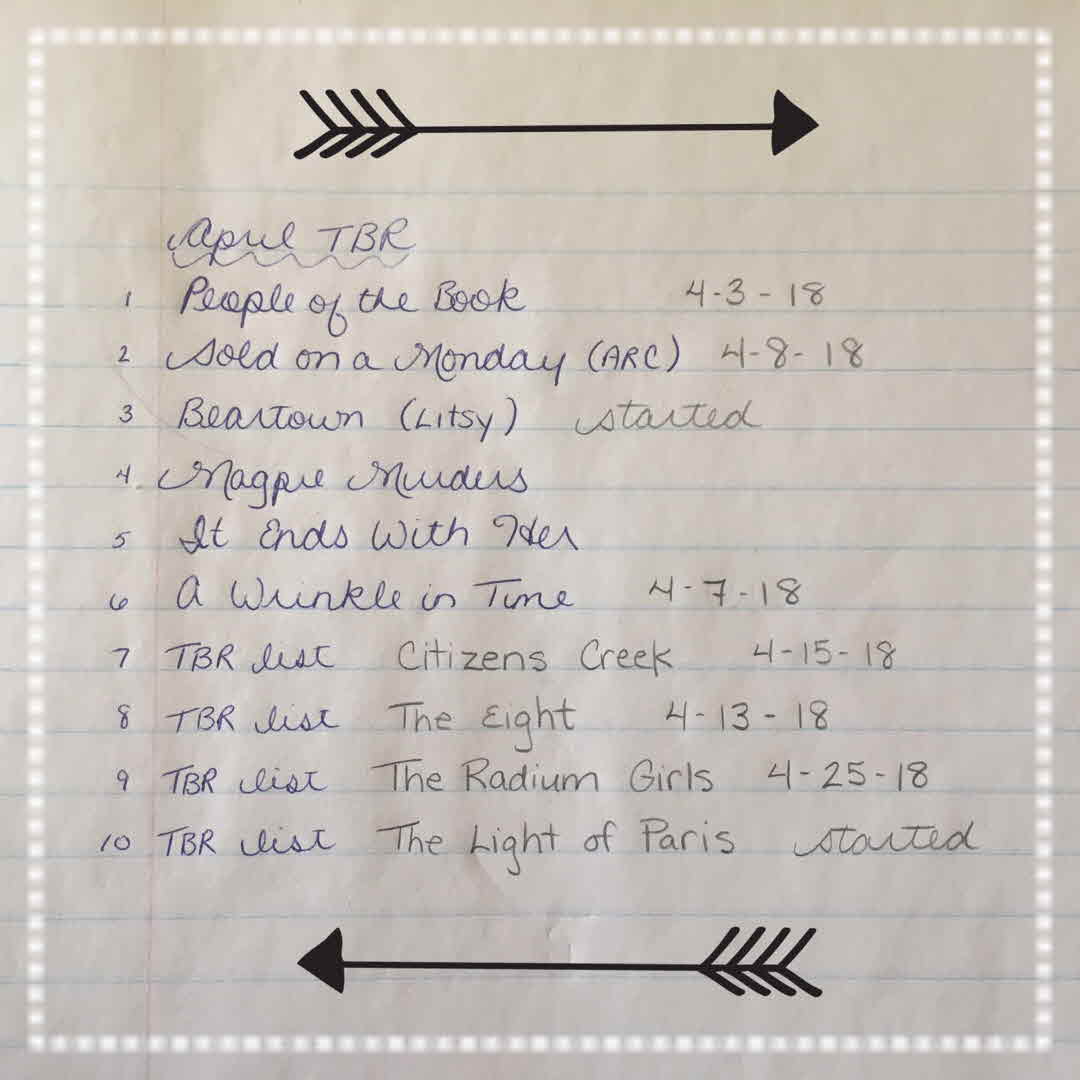 April TBR
1 People of the Book 4-3-18
2 Sold on a Monday (ARC) 4-8-18
3 Beartown (Litsy) started
4. Magpie Murders
5 It Ends With Her
6 A Wrinkle in Time 4-7-18
7 TBR list Citizens Creek 4-15-18
8 TBR list The Eight 4-13-18
9 TBR list The Radium Girls 4-25-18
10 TBR list The Light of Paris started